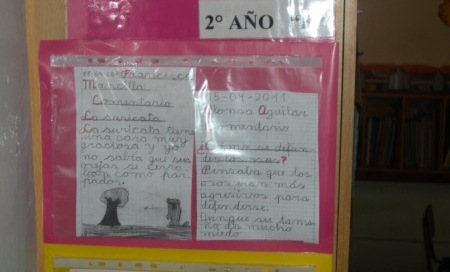 2º AÑO
Francisco
Mancilla
Comentario
La suricata
La suricata tiene
una cara muy
graciosa y yo
no sabía que sus
orejas se cerra-
van como par-
pados.
15-04-2011
Alonso Aguilar
Comentario
¿Cómo se defien-
den los osos?
Pensaba que los
osos eran más
agresivos para
defenderse.
Aunque su tama-
ño da mucho
miedo